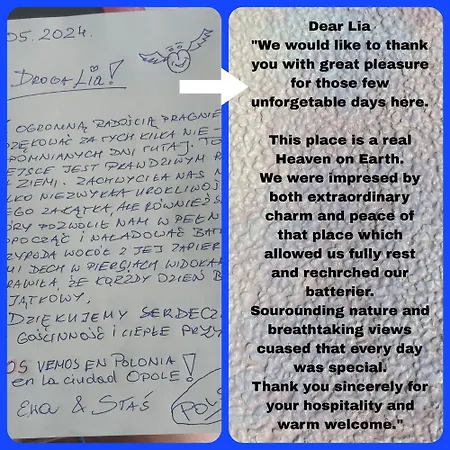 05.2024.
DROGA LIA!
OGROMNĄ RADOŚCIĄ PRAGNIE
ZA TYCH KILKA NIE-
DNI TUTAJ. TO
JEST PRAWDZIWYM R
ZIEMI. ZACHWYCIŁA NAS N
NIEZWYKŁA UROKLIWOŚ
ZAKĄTKA, ALE RÓWNIEŻ S
POZWOLIŁ NAM W PEŁN
I NAŁADOWAĆ BAT
WOKÓŁ Z JEJ ZAPIER
DECH W PIERSIACH WIDOKA
ŻE KAŻDY DZIEŃ B
JĄTKOWY.
DZIĘKUJEMY SERDECZ
GOŚCINNOŚĆ I CIEPŁE PRZY
OS VEMOS EN POLONIA
en la ciudad OPOLE!
EWA & STAŚ
POL
Dear Lia
"We would like to thank
you with great pleasure
for those few
unforgetable days here.
This place is a real
Heaven on Earth.
We were impresed by
both extraordinary
charm and peace of
that place which
allowed us fully rest
and rechrched our
batterier.
Sourounding nature and
breathtaking views
cuased that every day
was special.
Thank you sincerely for
your hospitality and
warm welcome."